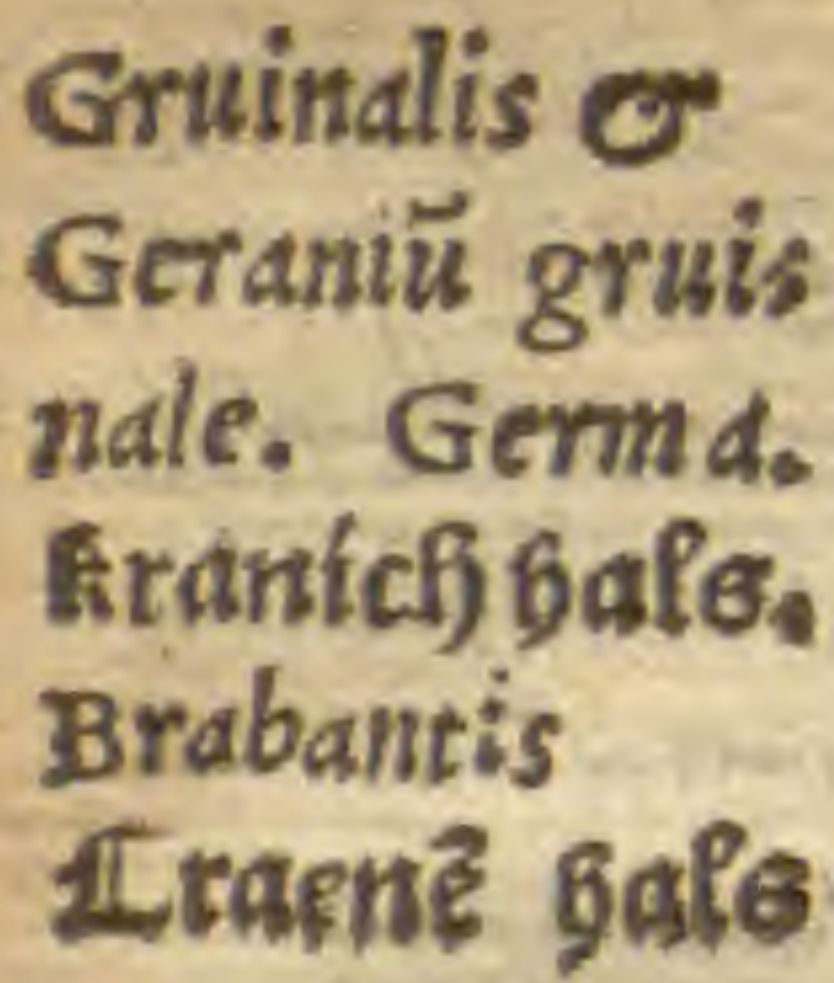 Gruinalis &
Geraniū gruis
nale. Germa.
kranich hals.
Brabantis
Craenē hals